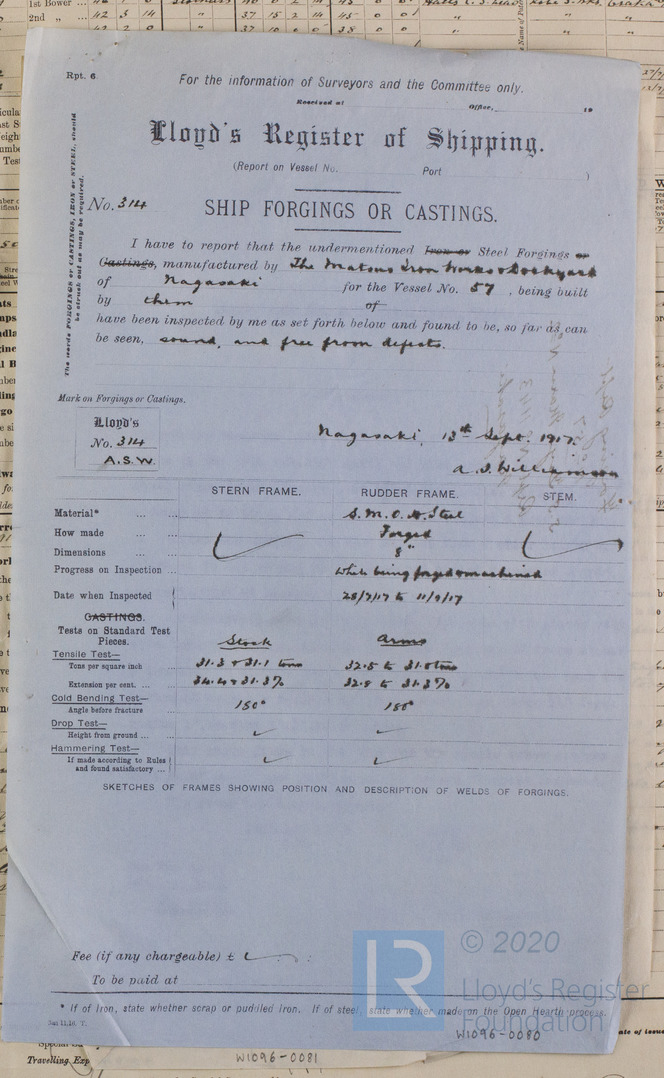 1st Bower
2nd „
Rpt. 6.
For the information of Surveyors and the Committee only.
Received at Office, 19
Lloyd's Register of Shipping.
(Report on Vessel No. Port )
The words FORGINGS or CASTINGS, IRON or STEEL, should be struck out as may be required.
No. 314
SHIP FORGINGS OR CASTINGS.
I have to report that the undermentioned Iron or Steel Forgings or
Castings, manufactured by The Matsuo Iron Works & Dockyard
of Nagasaki for the Vessel No. 57, being built
by them of
have been inspected by me as set forth below and found to be, so far as can
be seen, sound, and free from defects.
Mark on Forgings or Castings.
Lloyd's
No. 314
A.S.W.
Nagasaki, 13th Sept. 1917.
A. S. Williamson
STERN FRAME. RUDDER FRAME. STEM.
Material* ... ... S. M. O. H. Steel
How made ... ... Forged
Dimensions ... ... 8"
Progress on Inspection ... While being forged & machined
Date when Inspected 28/7/17 to 11/9/17
CASTINGS.
Tests on Standard Test
Pieces.
Stock Arms
Tensile Test—
Tons per square inch 31.3 & 31.1 tons 32.5 to 31.0 tons
Extension per cent. ... ... 34.4 & 31.3% 32.8 to 31.3%
Cold Bending Test—
Angle before fracture 180° 180°
Drop Test—
Height from ground ... ...
Hammering Test—
If made according to Rules
and found satisfactory ...
SKETCHES OF FRAMES SHOWING POSITION AND DESCRIPTION OF WELDS OF FORGINGS.
Fee (if any chargeable) £ : :
To be paid at
* If of Iron, state whether scrap or puddled Iron. If of steel, state whether made on the Open Hearth process.
© 2020
LR
Lloyd's Register
Foundation
W1096-0080
W1096-0081
Travelling Exp